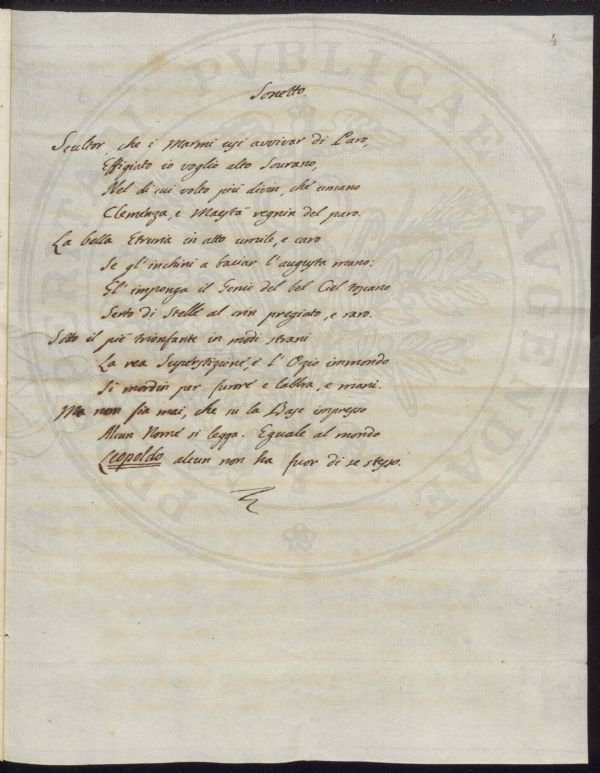 4
Sonetto.
Scultor, che i Marmi usi avvivar di Paro,
Effigiato io voglio alto Sovrano,
Nel di cui volto più divin, che umano
Clemenza, e Maestà vegnin del paro.
La bella Etruria in atto umile, e caro
Se gl'inchini a baciar l'augusta mano:
Gl'imponga il Genio del bel Ciel toscano
Serto di Stelle al crin pregiato, e raro.
Sotto il piè trionfante in modi strani
La rea Superstizione, e l'Ozio immondo
Si mordin per furore e labbra, e mani.
Ma non fia mai, che su la Base impresso
Alcun Nome si legga. Eguale al mondo
Leopoldo alcun non ha fuor di se stesso.
PVBLICAE
AVGENDAE